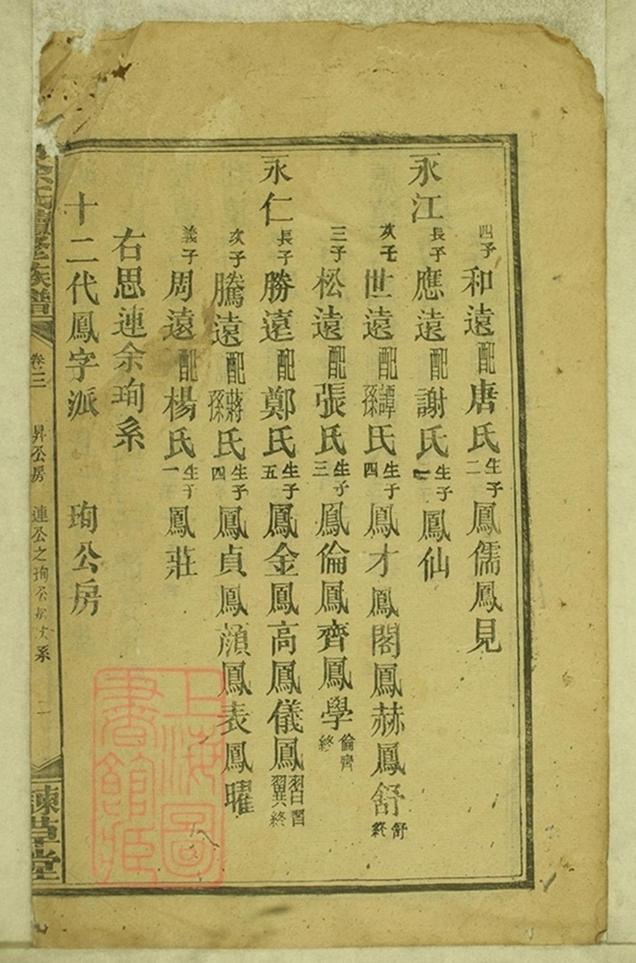 四子 和遠 配 唐氏 生子二 鳳儒 鳳見
永江
長子 應遠 配 謝氏 生子一 鳳仙
次子 世遠 配 譚孫氏 生子四 鳳才 鳳閣 鳳赫 鳳舒 舒終
三子 松遠 配 張氏 生子三 鳳倫 鳳齊 鳳學 倫齊終
永仁
長子 勝遠 配 鄭氏 生子五 鳳金 鳳高 鳳儀 鳳
次子 騰遠 配 蔣孫氏 生子四 鳳貞 鳳顔 鳳表 鳳曜
義子 周遠 配 楊氏 生子一 鳳莊
右思連余珣系
十二代鳳字派 珣公房
余氏續修族譜 卷三 昇公房 連公之珣公 系 二
上海圖書館